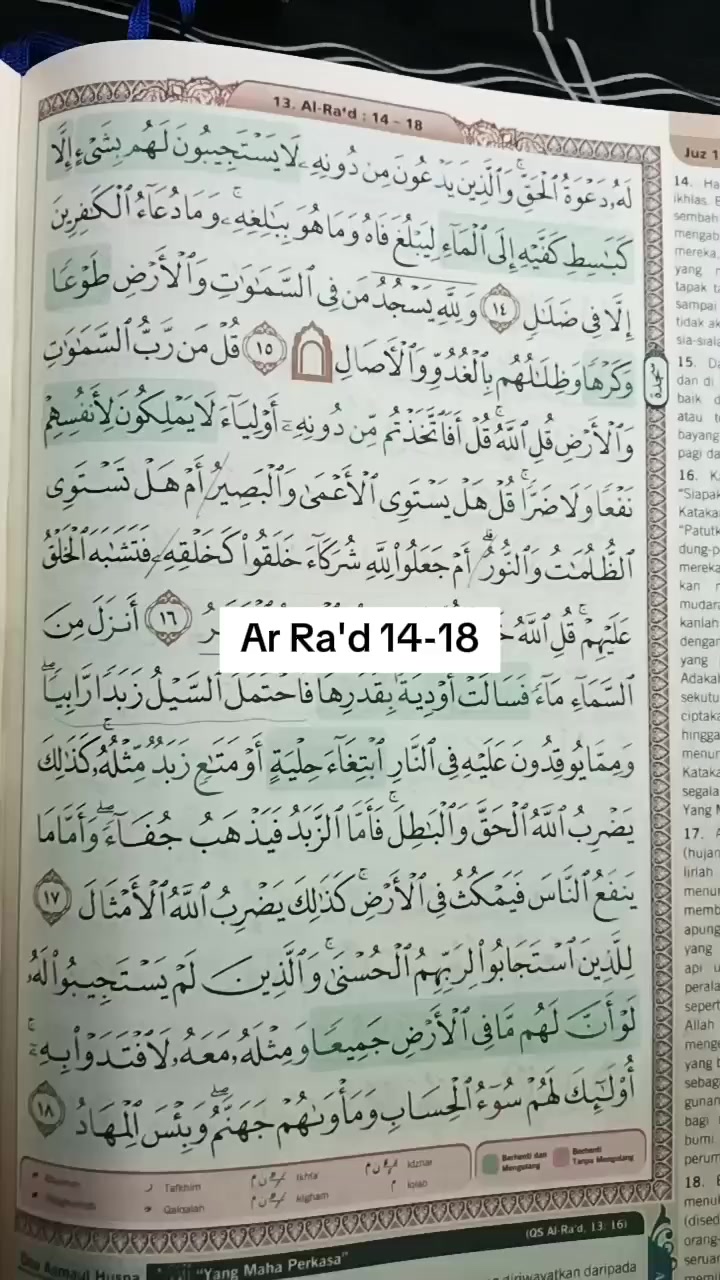 13. Al-Ra'd : 14 - 18
لَهُۥ دَعْوَةُ ٱلْحَقِّ ۚ وَٱلَّذِينَ يَدْعُونَ مِن دُونِهِۦ لَا يَسْتَجِيبُونَ لَهُم بِشَىْءٍ إِلَّا
كَبَـٰسِطِ كَفَّيْهِ إِلَى ٱلْمَآءِ لِيَبْلُغَ فَاهُ وَمَا هُوَ بِبَـٰلِغِهِۦ ۚ وَمَا دُعَآءُ ٱلْكَـٰفِرِينَ
إِلَّا فِى ضَلَـٰلٍ ١٤ وَلِلَّهِ يَسْجُدُ مَن فِى ٱلسَّمَـٰوَٰتِ وَٱلْأَرْضِ طَوْعًا
وَكَرْهًا وَظِلَـٰلُهُم بِٱلْغُدُوِّ وَٱلْـَٔاصَالِ ۩ ١٥ قُلْ مَن رَّبُّ ٱلسَّمَـٰوَٰتِ
سجدة
وَٱلْأَرْضِ قُلِ ٱللَّهُ ۚ قُلْ أَفَٱتَّخَذْتُم مِّن دُونِهِۦٓ أَوْلِيَآءَ لَا يَمْلِكُونَ لِأَنفُسِهِمْ
نَفْعًا وَلَا ضَرًّا ۚ قُلْ هَلْ يَسْتَوِى ٱلْأَعْمَىٰ وَٱلْبَصِيرُ أَمْ هَلْ تَسْتَوِى
ٱلظُّلُمَـٰتُ وَٱلنُّورُ ۗ أَمْ جَعَلُوا۟ لِلَّهِ شُرَكَآءَ خَلَقُوا۟ كَخَلْقِهِۦ فَتَشَـٰبَهَ ٱلْخَلْقُ
عَلَيْهِمْ ۚ قُلِ ٱللَّهُ ١٦ أَنزَلَ مِنَ
Ar Ra'd 14-18
ٱلسَّمَآءِ مَآءً فَسَالَتْ أَوْدِيَةٌۢ بِقَدَرِهَا فَٱحْتَمَلَ ٱلسَّيْلُ زَبَدًا رَّابِيًا ۖ
وَمِمَّا يُوقِدُونَ عَلَيْهِ فِى ٱلنَّارِ ٱبْتِغَآءَ حِلْيَةٍ أَوْ مَتَـٰعٍ زَبَدٌ مِّثْلُهُۥ ۚ كَذَٰلِكَ
يَضْرِبُ ٱللَّهُ ٱلْحَقَّ وَٱلْبَـٰطِلَ ۚ فَأَمَّا ٱلزَّبَدُ فَيَذْهَبُ جُفَآءً ۖ وَأَمَّا مَا
يَنفَعُ ٱلنَّاسَ فَيَمْكُثُ فِى ٱلْأَرْضِ ۚ كَذَٰلِكَ يَضْرِبُ ٱللَّهُ ٱلْأَمْثَالَ ١٧
لِلَّذِينَ ٱسْتَجَابُوا۟ لِرَبِّهِمُ ٱلْحُسْنَىٰ ۚ وَٱلَّذِينَ لَمْ يَسْتَجِيبُوا۟ لَهُۥ
لَوْ أَنَّ لَهُم مَّا فِى ٱلْأَرْضِ جَمِيعًا وَمِثْلَهُۥ مَعَهُۥ لَٱفْتَدَوْا۟ بِهِۦٓ ۚ
أُو۟لَـٰٓئِكَ لَهُمْ سُوٓءُ ٱلْحِسَابِ وَمَأْوَىٰهُمْ جَهَنَّمُ ۖ وَبِئْسَ ٱلْمِهَادُ ١٨
Tafkhim
Qalqalah
Ikhfa'
Idgham
Idzhar
Iqlab
Berhenti dan Mengulang
Berhenti Tanpa Mengulang
(QS Al-Ra'd, 13: 16)
Asmaul Husna "Yang Maha Perkasa"
diriwayatkan daripada
Juz 1
14. Ha
ikhlas.
sembah
mengab
mereka,
yang
tapak
sampai
tidak
sia-sia
15. Da
dan di
baik
atau
bayang
pagi da
16.
"Siapak
Kataka
"Patutk
dung-p
mereka
kan
mudara
kanlah
dengan
yang
Adakal
sekutu
ciptaka
hingga
menur
Kataka
segala
Yang
17.
(hujan
liriah
menur
memb
apung
yang
api
perala
sepert
Allah
menge
yang
sebag
gunan
bagi
bumi
perum
18.
menul
(dised
orang-
serua